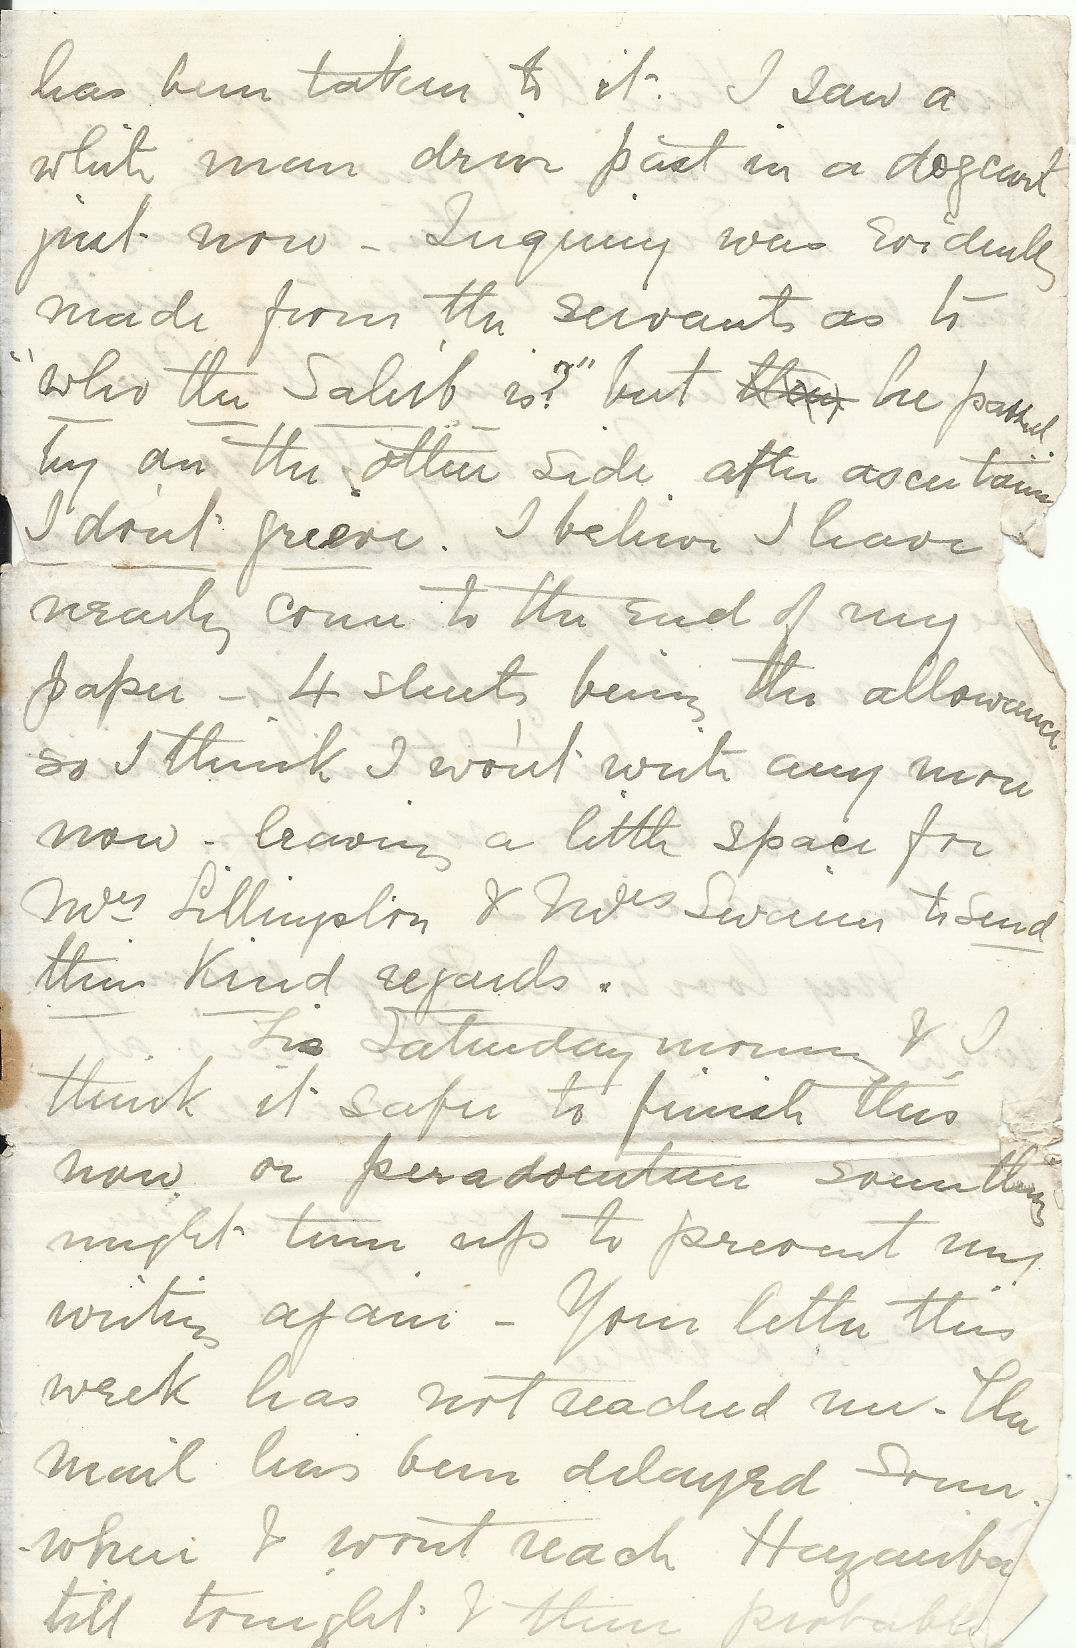 has been taken to it. I saw a
white man drive past in a dogcart
just now - Inquiry was evidently
made from the servants as to
"who the Sahib is?" but then he passed
by on the other side after ascertaining
I don't grieve. I believe I have
nearly come to the end of my
paper - 4 sheets being the allowance
so I think I won't write any more
now - leaving a little space for
Mrs Lillingston & Mrs Swaine to send
their Kind regards.
Tis Saturday morning & I
think it safer to finish this
now or peradventure something
might turn up to prevent my
writing again - Your letter this
week has not reached me - The
mail has been delayed some-
where & won't reach Hazariba
till tonight & then probably